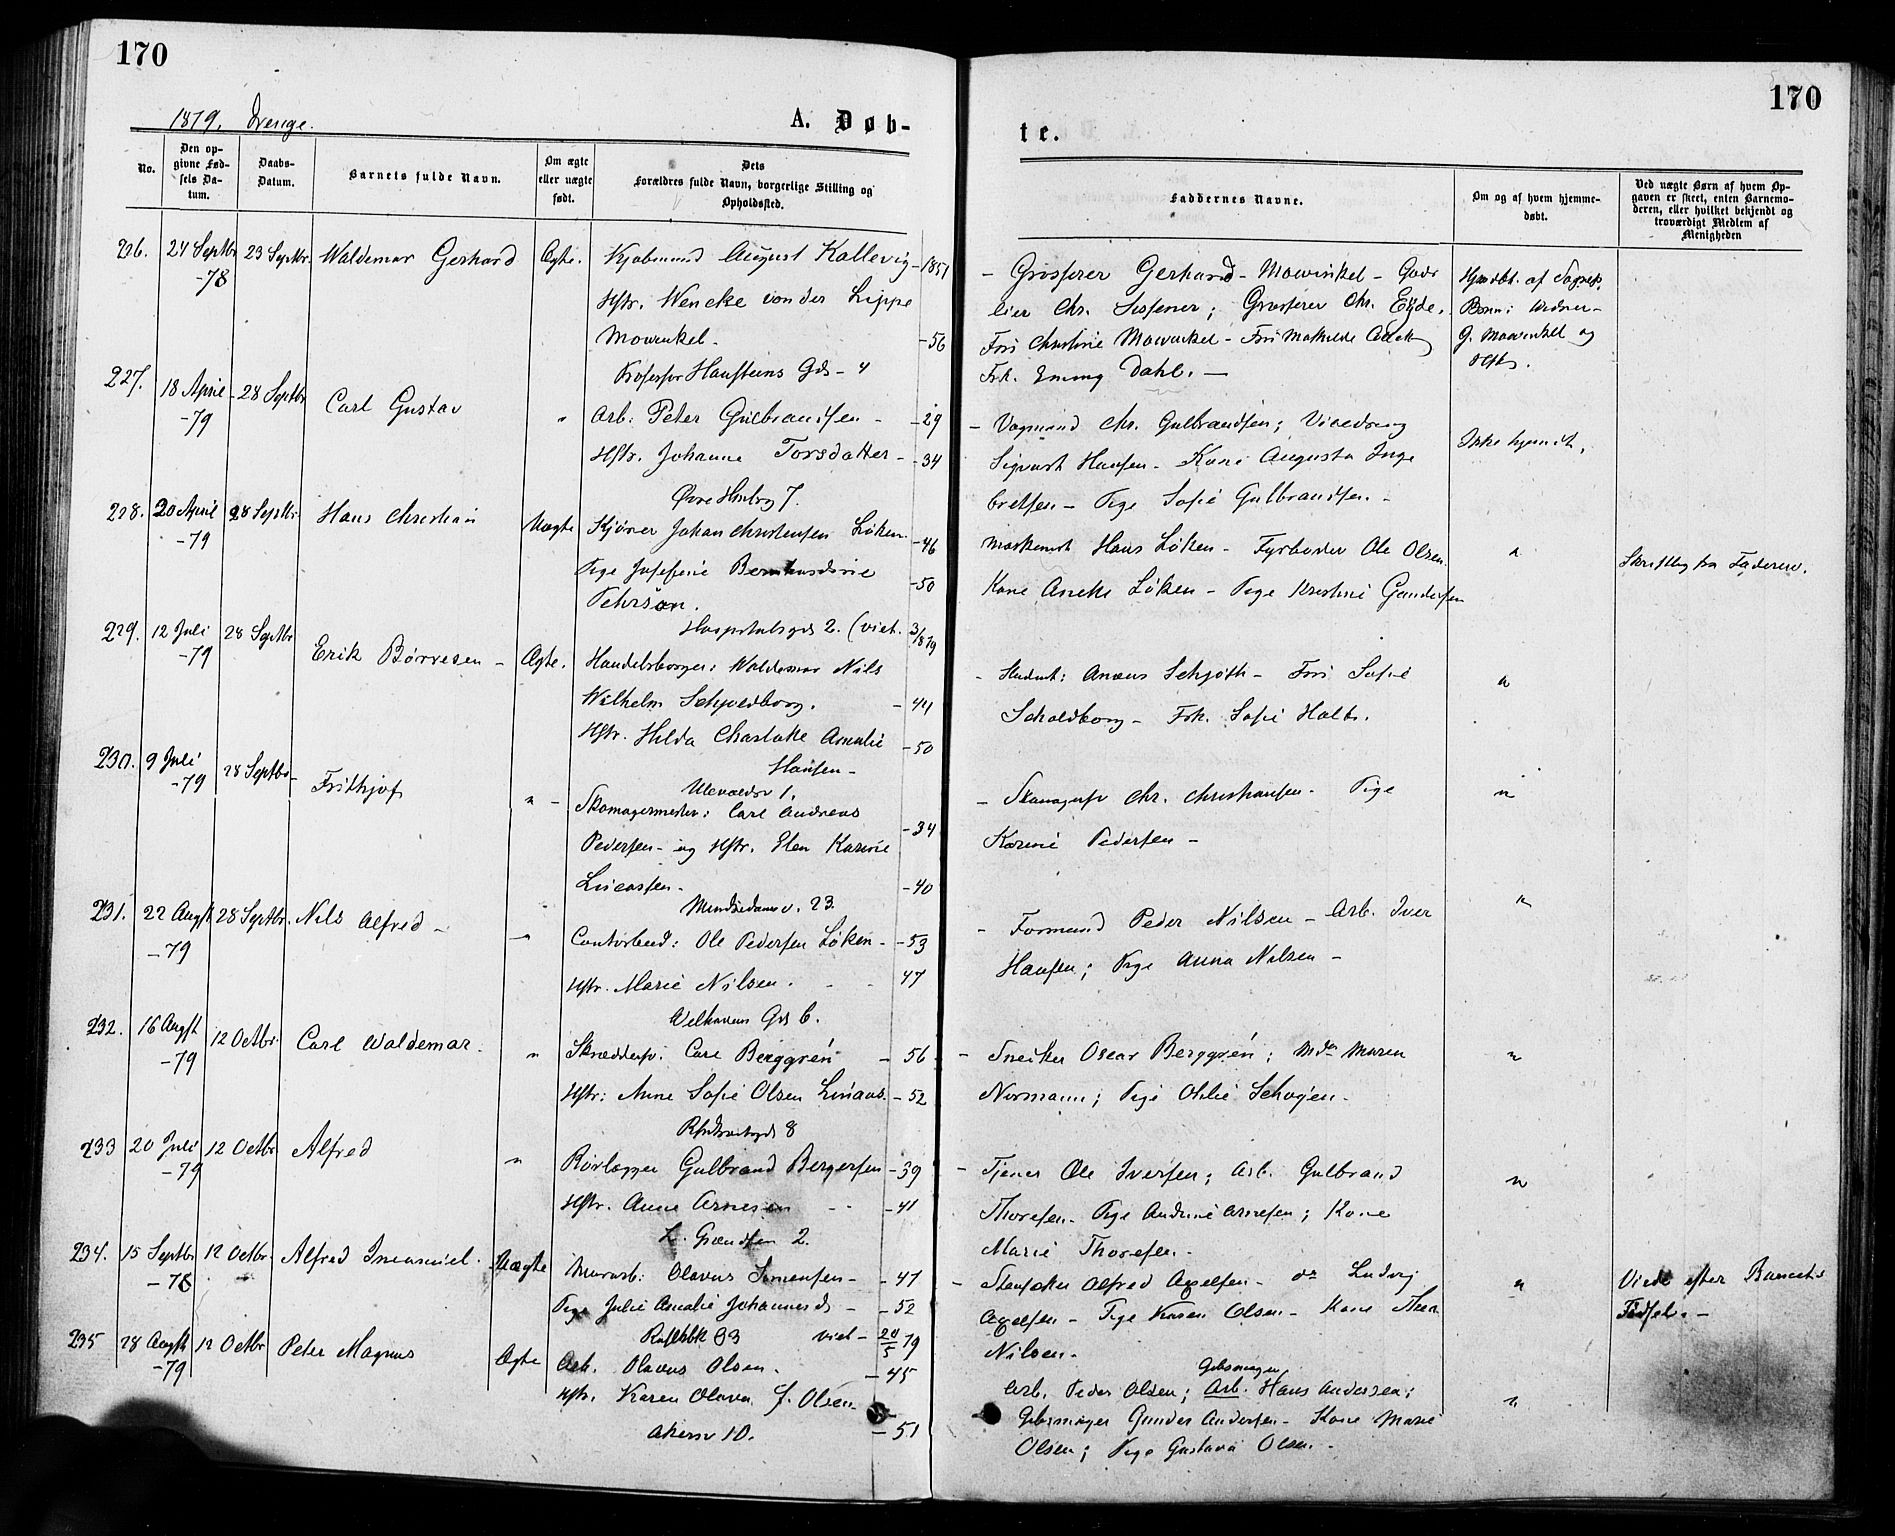 170
1879. Drenge.
A. Døb-
No.
Den op-
givne Fød-
sels Da-
tum.
Daabs-
Datum.
Barnets fulde Navn.
Om ægte
eller uægte
født.
Dets
Forældres fulde Navn, borgerlige Stilling og
Opholdssted.
226.
24 Septbr
-78
23 Septbr.
Waldemar Gerhard
Ægte.
Kjøbmand August Kallevig -1851
Hstr. Wencke von der Lippe
Mowinkel. -56
Professor Hansteens Gd - 4
227.
18 April
-79
28 Septbr
Carl Gustav
"
Arb: Peter Gulbrandsen - -29
Hstr. Johanne Torsdatter - -34
7.
228.
20 April
-79
28 Septbr
Hans Christian
Uægte
Johan Christensen Løken -46
Pige Josefine Bernhardine -50
Hospitalsgd 2. (viet. 3/8 79
229.
12 Juli
-79
28 Septbr
Erik Børresen -
Ægte.
Handelsborger: Waldemar Nils
Wilhelm Schjoldborg. -44
Hstr. Hilda Charlotte Amalie -50
Hansen -
Ulevoldsv 1.
230.
9 Juli
-79
28 Septbr
Frithjof
" -
Skomagermester: Carl Andreas -34
Pedersen - og Hstr. Elen Karine
-40
23.
231.
22 Augst
-79
28 Septbr.
Nils Alfred -
"
Contorbud: Ole Pedersen Løken - -53
Hstr. Marie Nilsen. - - 47
Welhavens Gd 6.
232.
16 Augst
-79
12 Octbr.
Carl Waldemar.
"
Skræddersv: Carl Berggrén - 56
Hstr: Anne Sofie Olsen -52
8
233
20 Juli
-79
12 Octbr
Alfred
"
Rørlægger Gulbrand Bergersen -39
Hstr. Anne Arnesen - - -41
L. Grændsen 2.
234.
15 Septbr
-78
12 Octbr.
Alfred Imanuel.
Uægte
Murarb: Olavus Simensen - -47
Pige Julie Amalie Johannesd - -52
viet - 20/5 79
235
28 Augst
-79
12 Octbr
Peter Magnus
Ægte
Arb. Olavus Olsen. -45
Hstr. Karen Olava J. Olsen -51
Akersv 10.
170
te.
Faddernes Navne.
Om og af hvem hjemme-
døbt.
Ved uægte Børn af hvem Op-
gaven er skeet, enten Barnemo-
deren, eller hvilket bekjendt og
troværdigt Medlem af
Menigheden
- Grosserer Gerhard - Mowinkel -
Chr. Grosserer Chr. Eyde.
Christine Mowinkel - Mathilde
Frk. Emmy Dahl. -
G. Mowinkel og
- Vognmand Chr. Gulbrandsen;
Sigvart Hansen - Kone Augusta Inge
bretsen - Pige Sofie Gulbrandsen. -
Ikke hjemdt.
Maskinist Hans Løken - Fyrbøder Ole Olsen.
Kone Løken - Pige Kristine Gundersen
"
fra Faderen.
- Student: Schjøth - Sofie
Scholdborg - Frk. Sofie Holth.
"
- Skomagersv Chr. Christiansen - Pige
Karine Pedersen -
"
- Formand Peder Nilsen - Arb. Iver
Hansen; Pige Anna Nilsen -
"
- Snedker Oscar Berggrén; Maren
Normann; Pige Schøyen -
"
- Tjener Ole Iversen; Arb. Gulbrand
Thoresen - Pige Andrine Arnesen; Kone
Marie Thoresen. -
"
- Alfred Axelsen - Ludvig
Axelsen - Pige Karen Olsen - Kone Thea
Nilsen.
"
Viede efter Barnets
Fødsel. -
Gibsmager
Arb. Peder Olsen; Arb. Hans Andersen;
Gibsmager Gunder Andersen - Kone Marie
Olsen; Pige Gustava Olsen. -
"